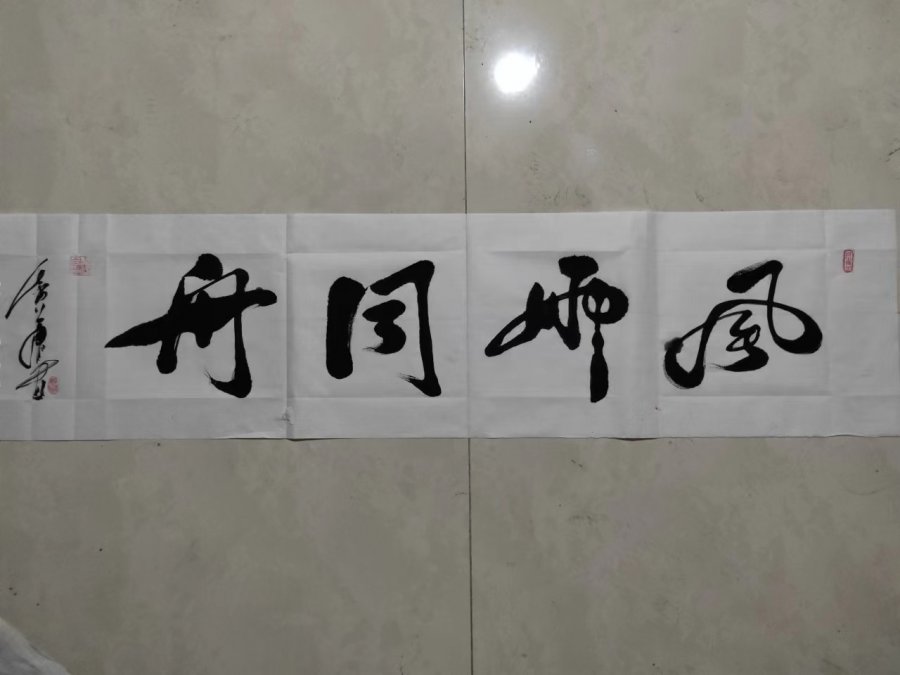 風雨同舟